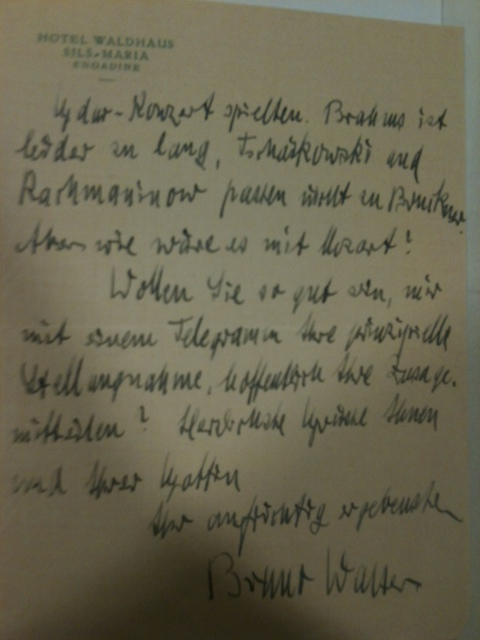 HOTEL WALDHAUS
SILS-MARIA
ENGADINE
Gdur-Konzert spielten. Brahms ist
leider zu lang, Tschaikowski und
Rachmaninow passen nicht zu Bruckner.
Aber wie wäre es mit Mozart?
Wollen Sie so gut sein, mir
mit einem Telegramm Ihre prinzipielle
Stellungnahme, hoffentlich Ihre Zusage,
mitteilen? Herzlichste Grüsse Ihnen
und Ihrer Gattin
Ihr aufrichtig ergebenster
Bruno Walter